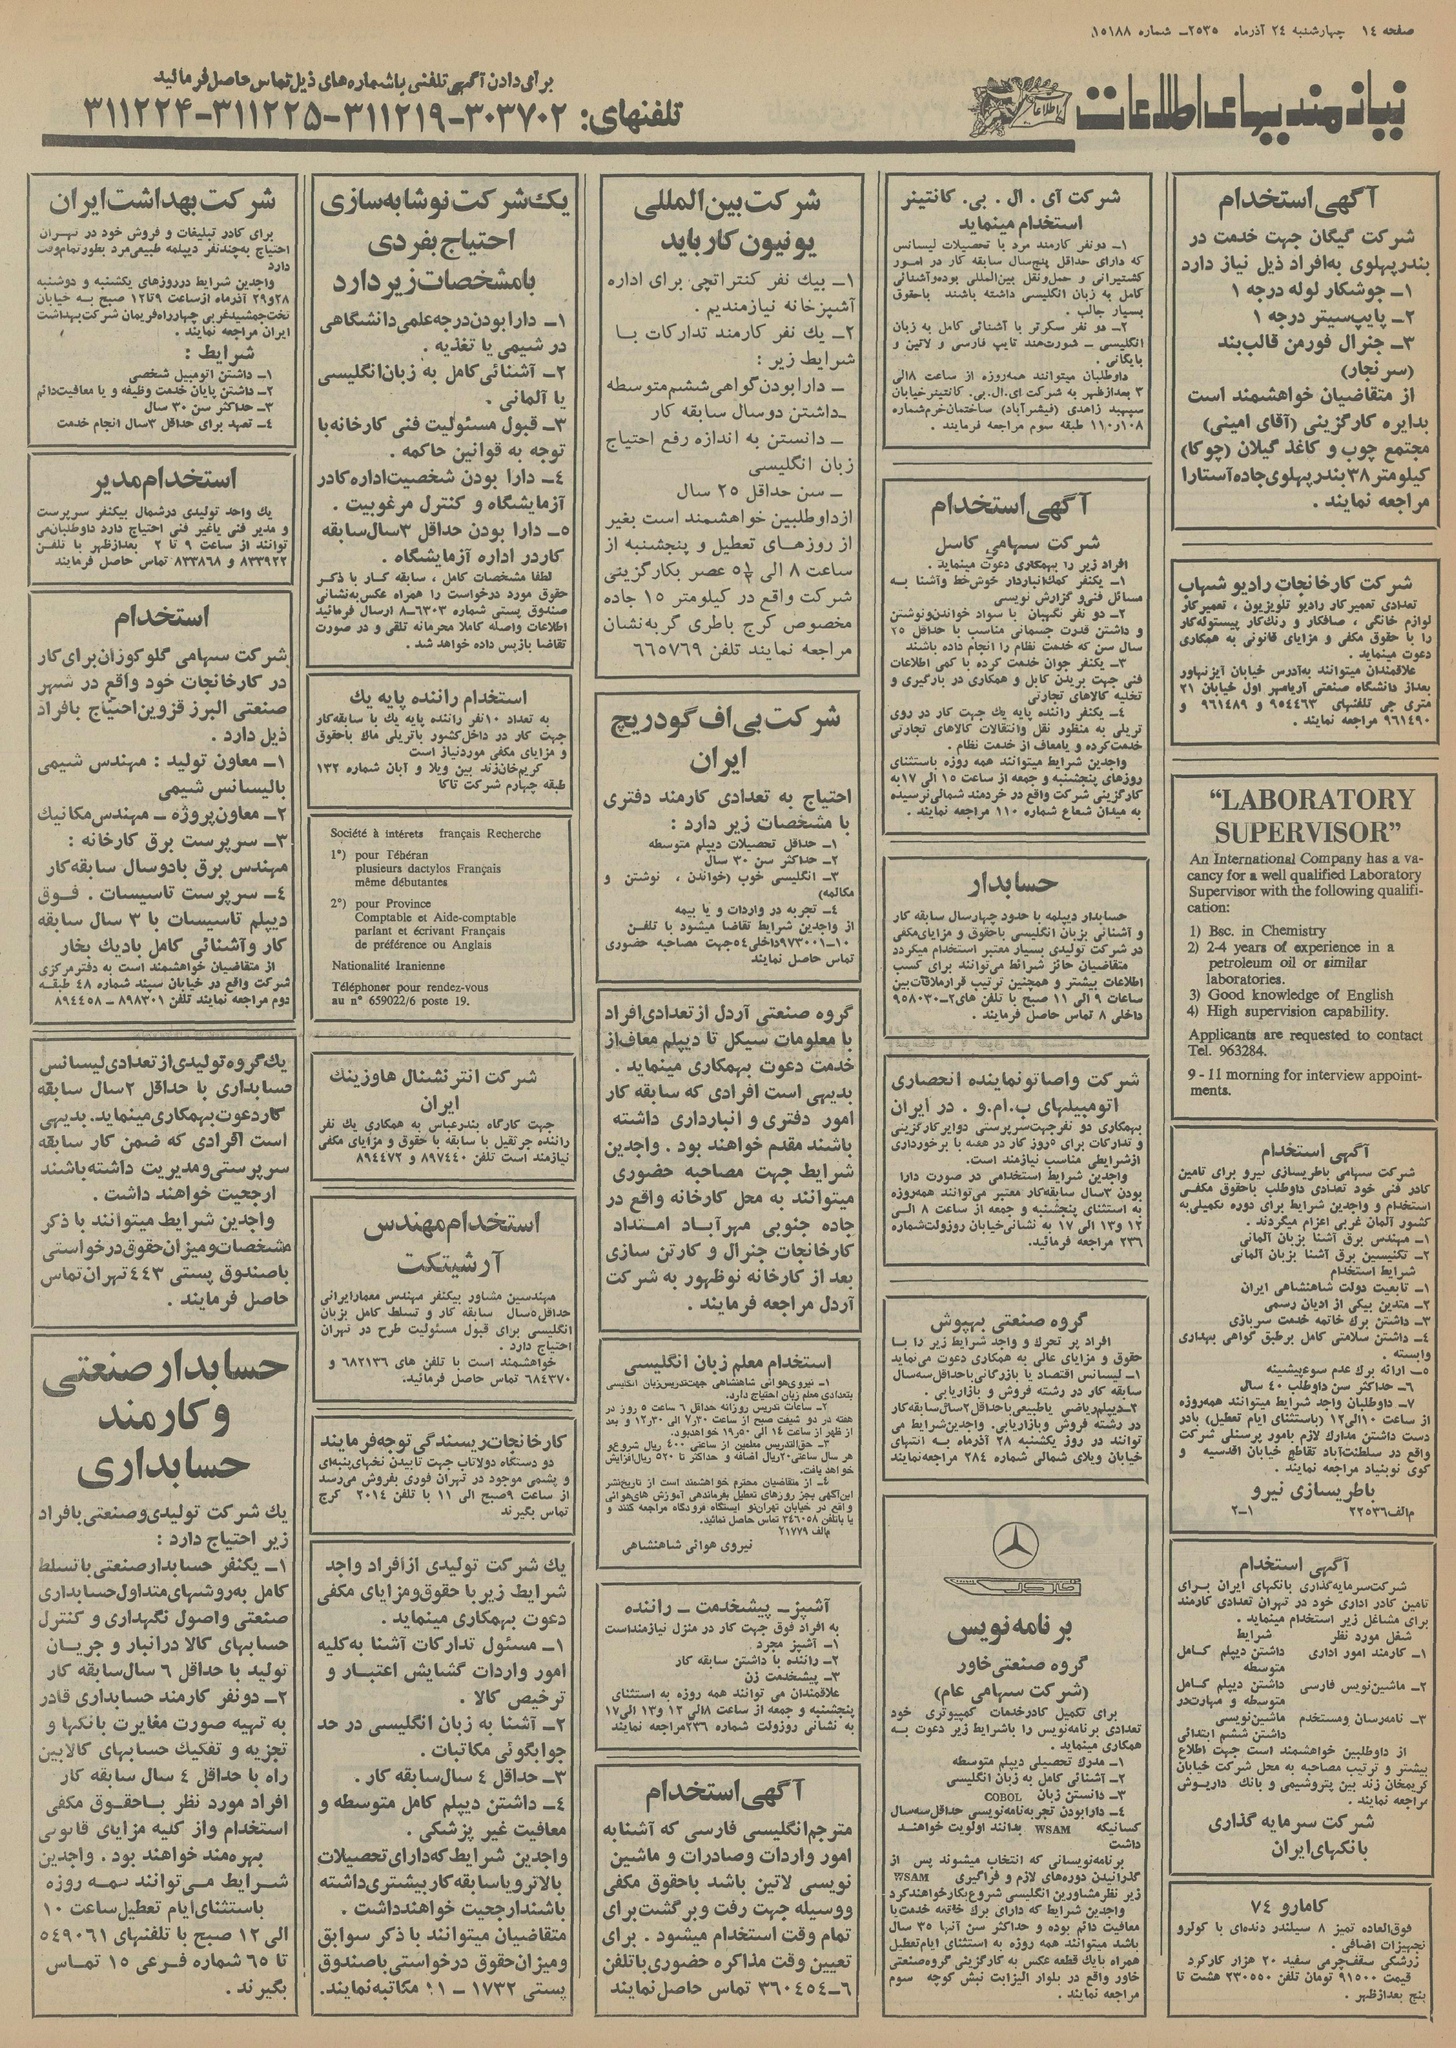 صفحه ۱۴ چهارشنبه ۲۴ آذرماه ۲۵۳۵ـ شماره ۱۵۱۸۸
نیازمندیهای اطلاعات
برای دادن آگهی تلفنی باشماره‌های ذیل تماس حاصل فرمائید
تلفنهای: ۳۰۳۷۰۲-۳۱۱۲۱۹-۳۱۱۲۲۵-۳۱۱۲۲۴
آگهی استخدام
شرکت گیگان جهت خدمت در
بندرپهلوی به‌افراد ذیل نیاز دارد
۱ـ جوشکار لوله درجه ۱
۲ـ پایپ‌سیتر درجه ۱
۳ـ جنرال فورمن قالب‌بند
(سر نجار)
از متقاضیان خواهشمند است
بدایره کارگزینی (آقای امینی)
مجتمع چوب و کاغذ گیلان (چوکا)
کیلومتر ۳۸ بندرپهلوی‌جاده‌آستارا
مراجعه نمایند .
شرکت کارخانجات رادیو شهاب
تعدادی تعمیرکار رادیو تلویزیون ، تعمیرکار
لوازم خانگی ، صافکار و رنگ‌کار پیستوله‌کار
را با حقوق مکفی و مزایای قانونی به همکاری
دعوت مینماید .
علاقمندان میتوانند به‌آدرس خیابان آیزنهاور
بعداز دانشگاه صنعتی آریامهر اول خیابان ۲۱
متری جی تلفنهای ۹۵۴۴۶۳ و ۹۶۱۴۸۹ و
۹۶۱۴۹۰ مراجعه نمایند .
“LABORATORY
SUPERVISOR”
An International Company has a va-
cancy for a well qualified Laboratory
Supervisor with the following qualifi-
cation:
1) Bsc. in Chemistry
2) 2-4 years of experience in a
petroleum oil or similar
laboratories.
3) Good knowledge of English
4) High supervision capability.
Applicants are requested to contact
Tel. 963284.
9 - 11 morning for interview appoint-
ments.
آگهی استخدام
شرکت سهامی باطریسازی نیرو برای تامین
کادر فنی خود تعدادی داوطلب باحقوق مکفی
استخدام و واجدین شرایط برای دوره تکمیلی‌به
کشور آلمان غربی اعزام میگردند .
۱ـ مهندس برق آشنا بزبان آلمانی
۲ـ تکنیسین برق آشنا بزبان آلمانی
شرایط استخدام
۱ـ تابعیت دولت شاهنشاهی ایران
۲ـ متدین بیکی از ادیان رسمی
۳ـ داشتن برگ خاتمه خدمت سربازی
۴ـ داشتن سلامتی کامل برطبق گواهی بهداری
وابسته .
۵ـ ارائه برگ عدم سوءپیشینه
۶ـ حداکثر سن داوطلب ۴۰ سال
۷ـ داوطلبان واجد شرایط میتوانند همه‌روزه
از ساعت ۱۰الی۱۲ (باستثنای ایام تعطیل) بادر
دست داشتن مدارک لازم بامور پرسنلی شرکت
واقع در سلطنت‌آباد تقاطع خیابان اقدسیه و
کوی نوبنیاد مراجعه نمایند .
باطریسازی نیرو
م‌الف۲۲۵۳۶ ۱-۲
آگهی استخدام
شرکت‌سرمایه‌گذاری بانکهای ایران برای
تامین کادر اداری خود در تهران تعدادی کارمند
برای مشاغل زیر استخدام مینماید .
شغل مورد نظر شرایط
۱ـ کارمند امور اداری داشتن دیپلم کامل
متوسطه
۲ـ ماشین‌نویس فارسی داشتن دیپلم کامل
متوسطه و مهارت‌در
ماشین‌نویسی
۳ـ نامه‌رسان ومستخدم داشتن ششم ابتدائی
از داوطلبین خواهشمند است جهت اطلاع
بیشتر و ترتیب مصاحبه به محل شرکت خیابان
کریمخان زند بین پتروشیمی و بانک داریوش
مراجعه نمایند .
شرکت سرمایه گذاری
بانکهای‌ایران
کامارو ۷۴
فوق‌العاده تمیز ۸ سیلندر دنده‌ای با کولرو
تجهیزات اضافی .
زرشکی سقف‌چرمی سفید ۲۰ هزار کارکرد
قیمت ۹۱۵۰۰ تومان تلفن ۲۳۰۵۵۰ هشت تا
پنج بعدازظهر .
شرکت آی . ال . بی. کانتینر
استخدام مینماید
۱ـ دونفر کارمند مرد با تحصیلات لیسانس
که دارای حداقل پنج‌سال سابقه کار در امور
کشتیرانی و حمل‌ونقل بین‌المللی بوده‌وآشنائی
کامل به زبان انگلیسی داشته باشند باحقوق
بسیار جالب .
۲ـ دو نفر سکرتر با آشنائی کامل به زبان
انگلیسی ـ شورت‌هند تایپ فارسی و لاتین و
بایگانی .
داوطلبان میتوانند همه‌روزه از ساعت ۸الی
۳ بعدازظهر به شرکت آی.ال.بی. کانتینرخیابان
سپهبد زاهدی (فیشرآباد) ساختمان‌خرم‌شماره
۱۰۸ر۱۱۰ طبقه سوم مراجعه فرمایند .
آگهی استخدام
شرکت سهامی کاسل
افراد زیر را بهمکاری دعوت مینماید .
۱ـ یکنفر کمک‌انباردار خوش‌خط وآشنا به
مسائل فنی‌و گزارش نویسی
۲ـ دو نفر نگهبان با سواد خواندن‌ونوشتن
و داشتن قدرت جسمانی مناسب با حداقل ۲۵
سال سن که خدمت نظام را انجام داده باشند
۳ـ یکنفر جوان خدمت کرده با کمی اطلاعات
فنی جهت بریدن کابل و همکاری در بارگیری و
تخلیه کالاهای تجارتی
۴ـ یکنفر راننده پایه یک جهت کار در روی
تریلی به منظور نقل وانتقالات کالاهای تجارتی
خدمت‌کرده و یامعاف از خدمت نظام .
واجدین شرایط میتوانند همه روزه باستثنای
روزهای پنجشنبه و جمعه از ساعت ۱۵ الی ۱۷به
کارگزینی شرکت واقع در خردمند شمالی‌نرسیده
به میدان شعاع شماره ۱۱۰ مراجعه نمایند .
حسابدار
حسابدار دیپلمه با حدود چهارسال سابقه کار
و آشنائی بزبان انگلیسی باحقوق و مزایای‌مکفی
در شرکت تولیدی بسیار معتبر استخدام میگردد
متقاضیان حائز شرائط می‌توانند برای کسب
اطلاعات بیشتر و همچنین ترتیب قرارملاقات‌بین
ساعات ۹ الی ۱۱ صبح با تلفن های۲-۹۵۸۰۳۰
داخلی ۸ تماس حاصل فرمایند .
شرکت واصاتو نماینده انحصاری
اتومبیلهای ب.ام.و . در ایران
بهمکاری دو نفرجهت‌سرپرستی دوایرکارگزینی
و تدارکات برای ۵روز کار در هفته با برخورداری
ازشرایطی مناسب نیازمند است.
واجدین شرایط استخدامی در صورت دارا
بودن ۳سال سابقه‌کار معتبر می‌توانند همه‌روزه
به استثنای پنجشنبه و جمعه از ساعت ۸ الی
۱۲ و۱۳ الی ۱۷ به نشانی‌خیابان روزولت‌شماره
۲۳۶ مراجعه فرمائید.
گروه صنعتی بهپوش
افراد پر تحرک و واجد شرایط زیر را با
حقوق و مزایای عالی به همکاری دعوت می‌نماید
۱ـ لیسانس اقتصاد یا بازرگانی باحداقل سه‌سال
سابقه کار در رشته فروش و بازاریابی .
۲ـدیپلم‌ریاضی یاطبیعی‌باحداقل‌۲سال‌سابقه‌کار
در رشته فروش وبازاریابی. واجدین‌شرایط می
توانند در روز یکشنبه ۲۸ آذرماه به انتهای
خیابان ویلای شمالی شماره ۲۸۴ مراجعه‌نمایند
خاور
برنامه‌نویس
گروه صنعتی خاور
(شرکت سهامی عام)
برای تکمیل کادرخدمات کمپیوتری خود
تعدادی برنامه‌نویس را باشرایط زیر دعوت به
همکاری مینماید .
۱ـ مدرک تحصیلی دیپلم متوسطه
۲ـ آشنائی کامل به زبان انگلیسی
۳ـ دانستن زبان COBOL
۴ـ دارابودن تجربه‌نامه‌نویسی حداقل‌سه‌سال
کسانیکه WSAM بدانند اولویت خواهند
داشت
برنامه‌نویسانی که انتخاب میشوند پس از
گذرانیدن دوره‌های لازم و فراگیری WSAM
زیر نظرمشاورین انگلیسی شروع‌بکارخواهندکرد
واجدین شرایط که دارای برگ خاتمه خدمت‌یا
معافیت دائم بوده و حداکثر سن آنها ۳۵ سال
باشد میتوانند همه روزه به استثنای ایام‌تعطیل
همراه بایک قطعه عکس به کارگزینی گروه‌صنعتی
خاور واقع در بلوار الیزابت نبش کوچه سوم
مراجعه نمایند .
شرکت بین‌المللی
یونیون کارباید
۱ـ بیک نفر کنتراتچی برای اداره
آشپزخانه نیازمندیم .
۲ـ یک نفر کارمند تدارکات با
شرایط زیر :
ـ دارابودن‌گواهی‌ششم‌متوسطه
ـداشتن دوسال سابقه کار
ـ دانستن به اندازه رفع احتیاج
زبان انگلیسی
ـ سن حداقل ۲۵ سال
ازداوطلبین خواهشمند است بغیر
از روزهای تعطیل و پنجشنبه از
ساعت ۸ الی ۵½ عصر بکارگزینی
شرکت واقع در کیلومتر ۱۵ جاده
مخصوص کرج باطری گربه‌نشان
مراجعه نمایند تلفن ۶۶۵۷۶۹
شرکت بی‌اف گودریچ
ایران
احتیاج به تعدادی کارمند دفتری
با مشخصات زیر دارد :
۱ـ حداقل تحصیلات دیپلم متوسطه
۲ـ حداکثر سن ۳۰ سال
۳ـ انگلیسی خوب (خواندن ، نوشتن و
مکالمه)
۴ـ تجربه در واردات و یا بیمه
از واجدین شرایط تقاضا میشود با تلفن
۱۰-۹۷۳۰۰۱داخلی‌۵۴جهت مصاحبه حضوری
تماس حاصل نمایند
گروه صنعتی آردل ازتعدادی‌افراد
با معلومات سیکل تا دیپلم معاف‌از
خدمت دعوت بهمکاری مینماید .
بدیهی است افرادی که سابقه کار
امور دفتری و انبارداری داشته
باشند مقدم خواهند بود . واجدین
شرایط جهت مصاحبه حضوری
میتوانند به محل کارخانه واقع در
جاده جنوبی مهرآباد امتداد
کارخانجات جنرال و کارتن سازی
بعد از کارخانه نوظهور به شرکت
آردل مراجعه فرمایند .
استخدام معلم زبان انگلیسی
۱ـ نیروی‌هوائی شاهنشاهی جهت‌تدریس‌زبان انگلیسی
بتعدادی معلم زبان احتیاج دارد.
۲ـ ساعات تدریس روزانه حداقل ۶ ساعت ۵ روز در
هفته در دو شیفت صبح از ساعت ۳۰ر۷ الی ۳۰ر۱۲ و بعد
از ظهر از ساعت ۱۴ الی ۵۰ر۱۹ خواهدبود.
۳ـ حق‌التدریس معلمین از ساعتی ۴۰۰ ریال شروع‌و
هر سال ساعتی‌۲۰ریال اضافه و حداکثر تا ۵۲۰ ریال‌افزایش
خواهد یافت.
۴ـ از متقاضیان محترم خواهشمند است از تاریخ‌نشر
این‌آگهی بجز روزهای تعطیل بفرماندهی آموزش های‌هوائی
واقع در خیابان تهران‌نو ایستگاه فرودگاه مراجعه کنند و
یا باتلفن ۳۴۶۰۵۸ تماس حاصل نمائید.
م‌الف ۲۱۷۷۹
نیروی هوائی شاهنشاهی
آشپز ـ پیشخدمت ـ راننده
به افراد فوق جهت کار در منزل نیازمنداست
۱ـ آشپز مجرد
۲ـ راننده با داشتن سابقه کار
۳ـ پیشخدمت زن
علاقمندان می توانند همه روزه به استثنای
پنجشنبه و جمعه از ساعت ۸الی ۱۲ و۱۳ الی۱۷
به نشانی روزولت شماره ۲۳۶مراجعه نمایند
آگهی استخدام
مترجم‌انگلیسی فارسی که آشنابه
امور واردات وصادرات و ماشین
نویسی لاتین باشد باحقوق مکفی
ووسیله جهت رفت وبرگشت‌برای
تمام وقت استخدام میشود . برای
تعیین وقت مذاکره حضوری‌باتلفن
۶-۳۶۰۴۵۴ تماس حاصل‌نمایند
یک‌شرکت نوشابه‌سازی
احتیاج بفردی
بامشخصات زیر دارد
۱ـ دارابودن‌درجه‌علمی‌دانشگاهی
در شیمی یا تغذیه .
۲ـ آشنائی‌کامل به زبان‌انگلیسی
یا آلمانی .
۳ـ قبول مسئولیت فنی کارخانه‌با
توجه به قوانین حاکمه .
۴ـ دارا بودن شخصیت‌اداره‌کادر
آزمایشگاه و کنترل مرغوبیت .
۵ـ دارا بودن حداقل ۳سال‌سابقه
کاردر اداره آزمایشگاه .
لطفا مشخصات کامل ، سابقه کار با ذکر
حقوق مورد درخواست را همراه عکس‌به‌نشانی
صندوق پستی شماره ۶۳۰۳-۸ ارسال فرمائید
اطلاعات واصله کاملا محرمانه تلقی و در صورت
تقاضا بازپس داده خواهد شد .
استخدام راننده پایه یك
به تعداد ۱۰نفر راننده پایه یک با سابقه‌کار
جهت کار در داخل‌کشور باتریلی ماک باحقوق
و مزایای مکفی موردنیاز است
کریم‌خان‌زند بین ویلا و آبان شماره ۱۳۲
طبقه چهارم شرکت تاکا
Société à intérets français Recherche
1°) pour Téhéran
plusieurs dactylos Français
même débutantes
2°) pour Province
Comptable et Aide-comptable
parlant et écrivant Français
de préférence ou Anglais
Nationalité Iranienne
Téléphoner pour rendez-vous
au n° 659022/6 poste 19.
شرکت انترنشنال هاوزینك
ایران
جهت کارگاه بندرعباس به همکاری یک نفر
راننده جرثقیل با سابقه با حقوق و مزایای مکفی
نیازمند است تلفن ۸۹۷۴۴۰ و ۸۹۴۴۷۲
استخدام مهندس
آرشیتکت
مهندسین مشاور بیکنفر مهندس معمارایرانی
حداقل‌۵سال سابقه کار و تسلط کامل بزبان
انگلیسی برای قبول مسئولیت طرح در تهران
احتیاج دارد .
خواهشمند است با تلفن های ۶۸۲۱۳۶ و
۶۸۴۳۷۰ تماس حاصل فرمائید.
کارخانجات ریسندگی توجه فرمایند
دو دستگاه دولاتاب جهت تابیدن نخهای‌پنبه‌ای
و پشمی موجود در تهران فوری بفروش می‌رسد
از ساعت ۹صبح الی ۱۱ با تلفن ۲۰۱۴ کرج
تماس بگیرند
یک شرکت تولیدی ازافراد واجد
شرایط زیر با حقوق‌ومزایای مکفی
دعوت بهمکاری مینماید .
۱ـ مسئول تدارکات آشنا به‌کلیه
امور واردات گشایش اعتبار و
ترخیص کالا .
۲ـ آشنا به زبان انگلیسی در حد
جوابگوئی مکاتبات.
۳ـ حداقل ۴ سال‌سابقه کار .
۴ـ داشتن دیپلم کامل متوسطه و
معافیت غیر پزشکی .
واجدین شرایط که‌دارای‌تحصیلات
بالاترویاسابقه‌کاربیشتری‌داشته
باشندارجحیت خواهندداشت .
متقاضیان میتوانند با ذکر سوابق
ومیزان‌حقوق درخواستی باصندوق
پستی ۱۷۳۲ ـ ۱۱ مکاتبه‌نمایند.
شرکت بهداشت ایران
برای کادر تبلیغات و فروش خود در تهران
احتیاج به‌چندنفر دیپلمه طبیعی‌مرد بطورتمام‌وقت
دارد
واجدین شرایط درروزهای یکشنبه و دوشنبه
۲۸و۲۹ آذرماه ازساعت ۹تا۱۲ صبح به خیابان
تخت‌جمشیدغربی چهارراه‌فریمان شرکت‌بهداشت
ایران مراجعه نمایند .
شرایط :
۱ـ داشتن اتومبیل شخصی
۲ـ داشتن پایان خدمت وظیفه و یا معافیت‌دائم
۳ـ حداکثر سن ۳۰ سال
۴ـ تعهد برای حداقل ۳سال انجام خدمت
استخدام مدیر
یک واحد تولیدی درشمال بیکنفر سرپرست
و مدیر فنی یاغیر فنی احتیاج دارد داوطلبان‌می
توانند از ساعت ۹ تا ۲ بعدازظهر با تلفن
۸۳۳۹۲۲ و ۸۳۳۸۶۸ تماس حاصل فرمایند
استخدام
شرکت سهامی گلوکوزان برای کار
در کارخانجات خود واقع در شهر
صنعتی البرز قزوین‌احتیاج بافراد
ذیل دارد .
۱ـ معاون تولید : مهندس شیمی
بالیسانس شیمی
۲ـ معاون‌پروژه ـ مهندس‌مکانیک
۳ـ سرپرست برق کارخانه :
مهندس برق بادوسال سابقه‌کار
۴ـ سرپرست تاسیسات . فوق
دیپلم تاسیسات با ۳ سال سابقه
کار وآشنائی کامل بادیگ بخار
از متقاضیان خواهشمند است به دفترمرکزی
شرکت واقع در خیابان سپند شماره ۴۸ طبقه
دوم مراجعه نمایند تلفن ۸۹۸۳۰۱ - ۸۹۴۴۵۸
یک‌گروه‌تولیدی‌از تعدادی‌لیسانس
حسابداری با حداقل ۲سال سابقه
کاردعوت‌بهمکاری‌مینماید. بدیهی
است افرادی که ضمن کار سابقه
سرپرستی‌ومدیریت داشته‌باشند
ارجحیت خواهند داشت .
واجدین شرایط میتوانند با ذکر
مشخصات‌ومیزان‌حقوق‌درخواستی
باصندوق پستی ۴۴۳ تهران‌تماس
حاصل فرمایند .
حسابدار صنعتی
و کارمند
حسابداری
یک شرکت تولیدی‌وصنعتی بافراد
زیر احتیاج دارد :
۱ـ یکنفر حسابدارصنعتی باتسلط
کامل به‌روشهای‌متداول‌حسابداری
صنعتی واصول نگهداری و کنترل
حسابهای کالا درانبار و جریان
تولید با حداقل ۶ سال‌سابقه کار
۲ـ دونفر کارمند حسابداری قادر
به تهیه صورت مغایرت بانکها و
تجزیه و تفکیک حسابهای کالابین
راه با حداقل ۴ سال سابقه کار
افراد مورد نظر باحقوق مکفی
استخدام واز کلیه مزایای قانونی
بهره‌مند خواهند بود . واجدین
شرایط می‌توانند همه روزه
باستثنای‌ایام تعطیل‌ساعت ۱۰
الی ۱۲ صبح با تلفنهای ۵۴۹۰۶۱
تا ۶۵ شماره فرعی ۱۵ تماس
بگیرند .